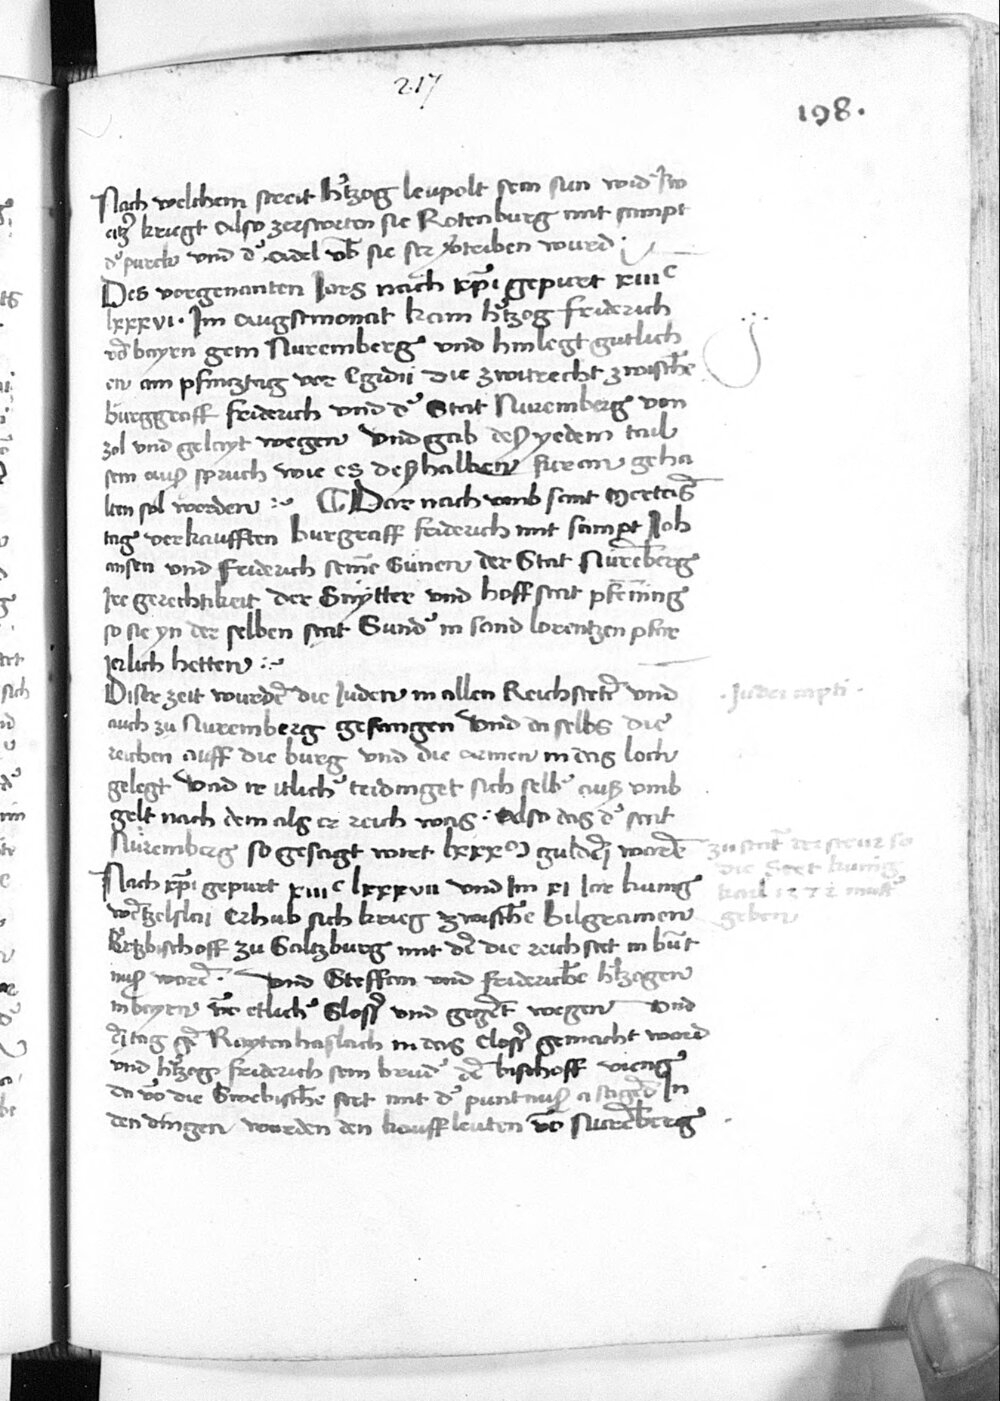 217
198.
Nach welchem streit h'tzog leupolt sein sun wid' Sw
eitz' kriegt Also zerstorten sie Rotenburg mit sampt
d' purck vnd d' Adel vō sie ser v'triben wurd
Des vorgenanten Jars nach xp̄i gepurt xiiiᶜ
lxxxvi. Im Augstmonat kam h'tzog friderich
vō bayrn gein Nuremberg vnd hinlegt gutlich
en am pfincztag vor Egidii die zwitrecht zwischē
burggraff friderich vnd d' Stat Nuremberg von
zol vnd gelayt wegen vnd gab deß yedem tail
sein auß spruch wie es deßhalben füran geha
lten sol werden :~ Dar nach vmb sant Merteīs
tag verkaufften burgraff friderich mit sampt Joh
ansen vnd friderich seinē Sünen der Stat Nurēberg
Ire gerechtikeit der Snytter vnd hoffstat pfennīg
so sie yn der selben stat Sund' in sand lorentzen pfar
Jerlich hetten :~
Diser zeit wurdē die Juden in allen Reichstetē vnd
auch zu Nuremberg gefangen vnd da selbs die
reichen auff die burg vnd die armen in das loch
gelegt vnd ir itlich' teidinget sich selb' auß vmb
gelt nach dem als er reich was : Also das d' stat
Nüremberg so gesagt wirt lxxx guldē wordē
Nach xp̄i gepurt xiiiᶜ lxxxvii vnd Im xi Jar kunig
wētzelslai Erhub sich krieg zwischē bilgramen
Ertzbischoff zu Saltzburg mit dē die reichstet in būt
nuß warē. vnd Steffan vnd friderichē h'tzogen
in bayrn vō etlich' Sloß vnd gegēt wegen vnd
ein tag gē Rayten haslach in das Closter gemacht ward
vnd h'tzog friderich sein brud' dē bischoff vieng
da vō die Swebischē stet mit d' puntnuß In
den dingen wurden den kauffleuten vō Nurēberg
. Judei capti .
zu stat der steur so
die Stet kunig
karl 1372 must
geben